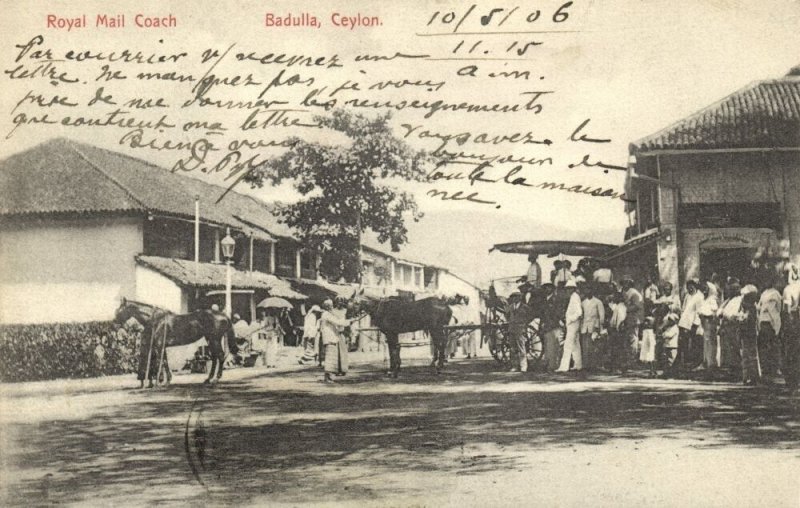 Royal Mail Coach
Badulla, Ceylon.
10/5/06
11.15
a.m.
Par courrier v/ recevrez une
lettre. Ne manquez pas, je vous
prie de me donner les renseignements
que contient ma lettre
Bien à vous
Vous savez le
de
toute la maison
née.